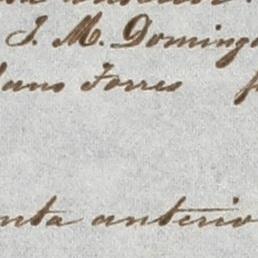 J. M. Domingo
lano Torres
nta anterio